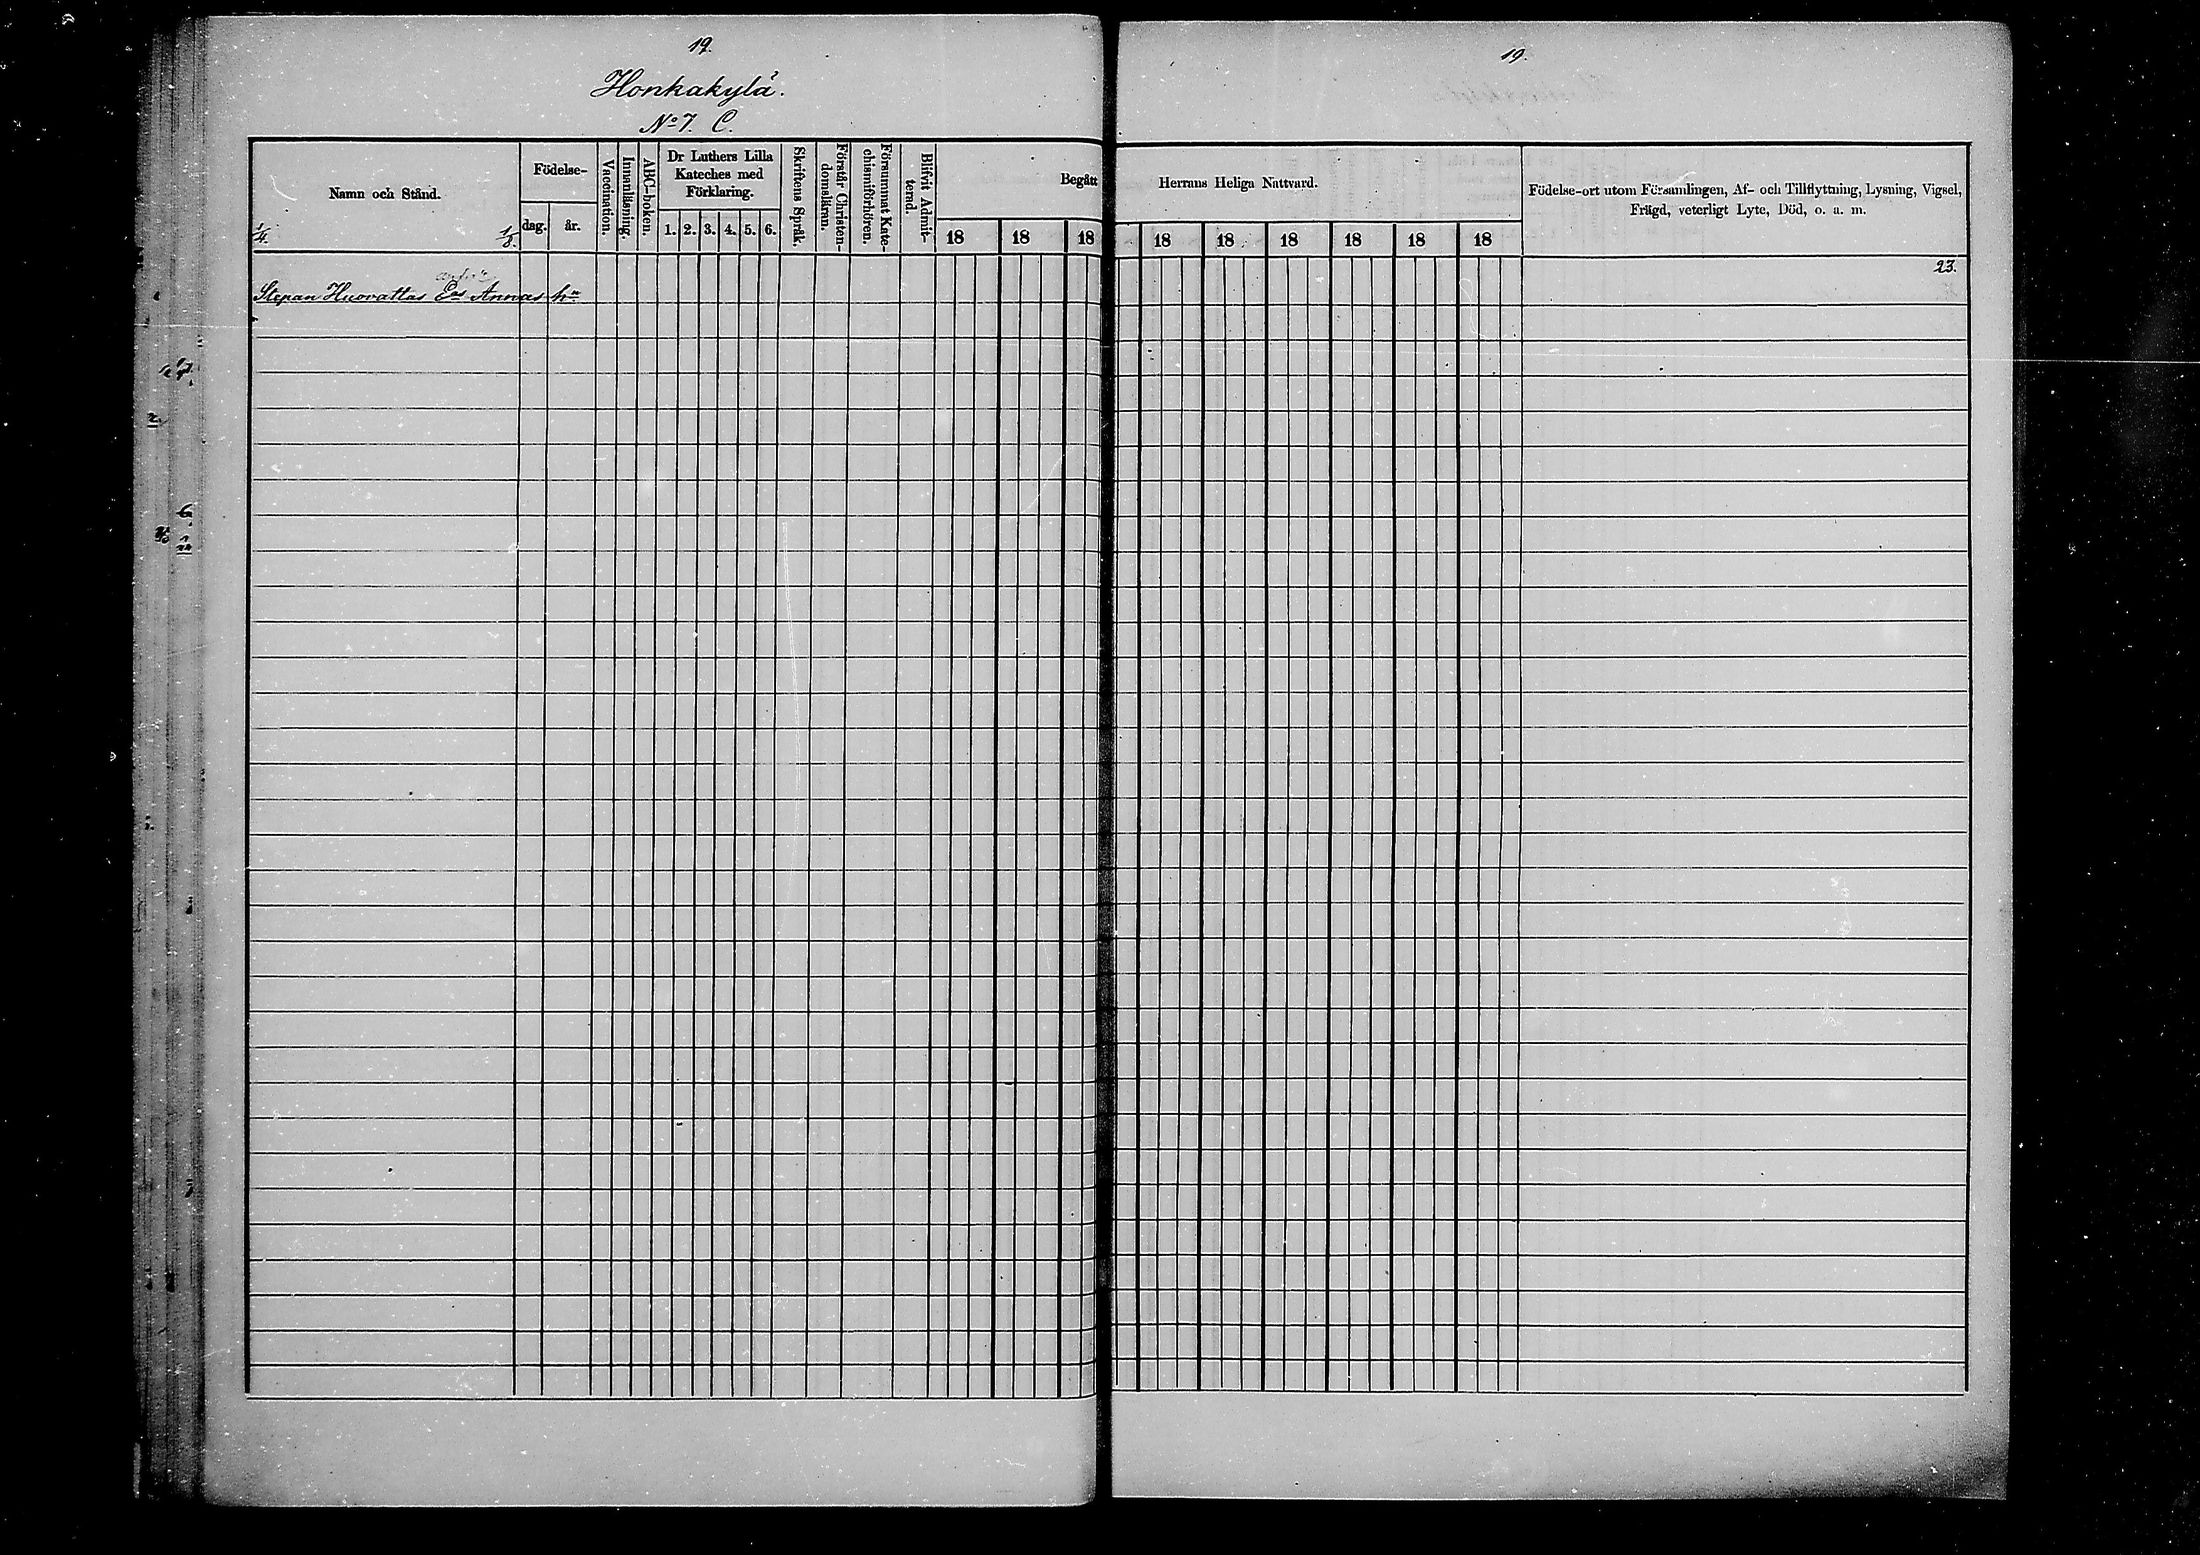 19.
Honkakylä.
No 7. C.
Namn och Stånd.
1/4.
1/8.
Födelse-
dag.
år.
Vaccination.
Innanläsning.
ABC-boken.
Dr Luthers Lilla
Kateches med
Förklaring.
1. 2. 3. 4. 5. 6.
Skriftens Språk.
Förstår Christen-
domsläran.
Försummat Kate-
chismiförhören.
Blifvit Admit-
terad.
Begått
18 18 18
Stepan Huovattas Eas Annas hn
19.
Herrans Heliga Nattvard.
18 18 18 18 18 18
Födelse-ort utom Församlingen, Af- och Tillflyttning, Lysning, Vigsel,
Frägd, veterligt Lyte, Död, o. a. m.
23.